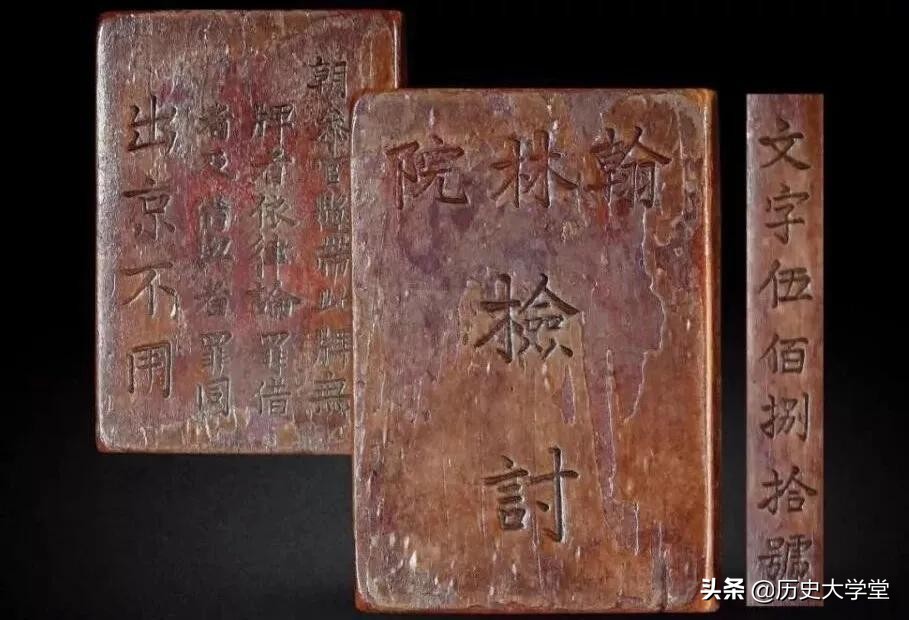 朝參官懸帶此牌無
牌者依律論罪借
者及借與者罪同
出京不用
翰林院
檢討
文字伍佰捌拾號
头条 @历史大学堂